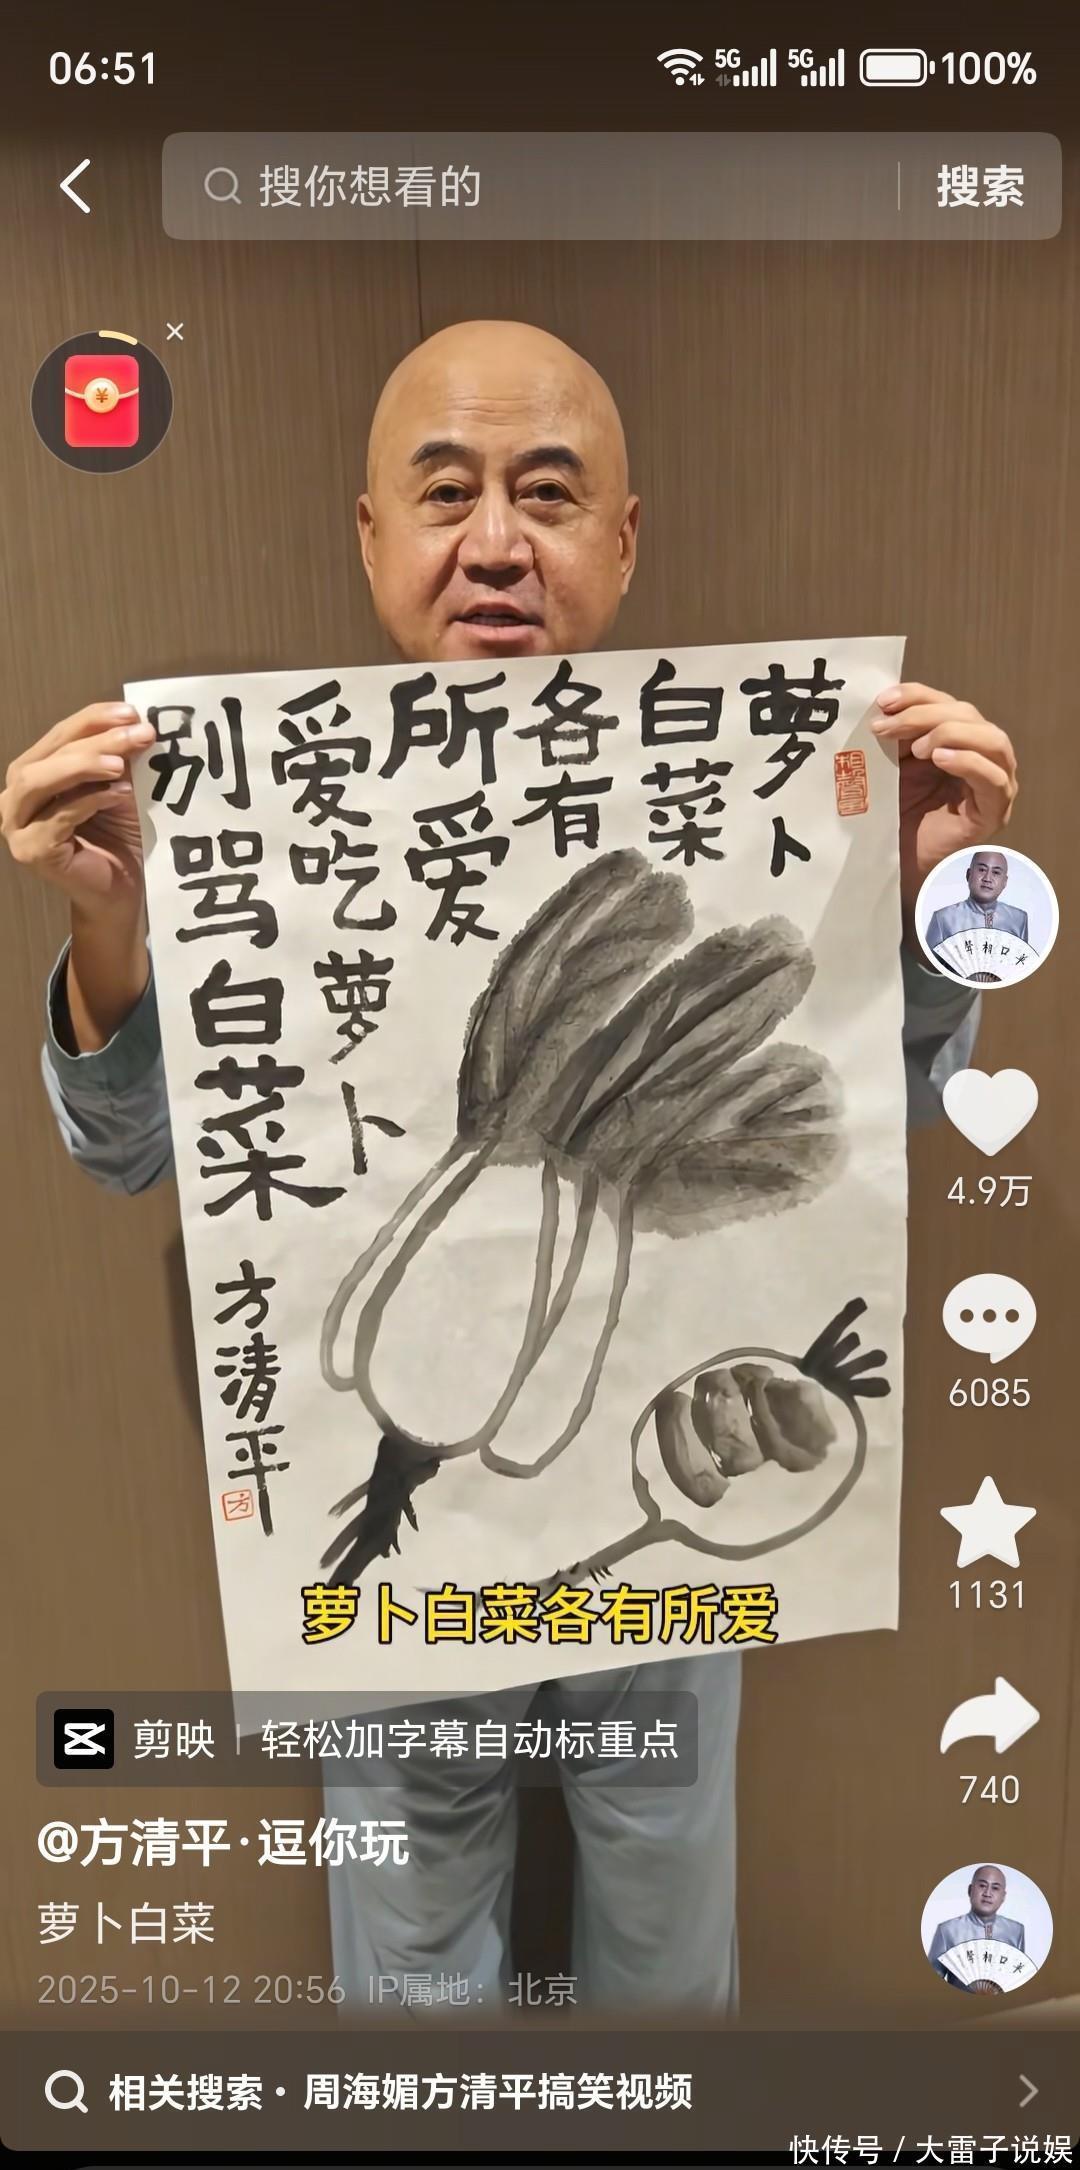 06:51
5G 5G 100%
搜你想看的
搜索
萝卜
白菜
各有
所爱
爱吃萝卜
别骂白菜
方清平
方
4.9万
6085
1131
740
萝卜白菜各有所爱
剪映 | 轻松加字幕自动标重点
@方清平·逗你玩
萝卜白菜
2025-10-12 20:56 IP属地：北京
相关搜索·周海媚方清平搞笑视频
快传号 / 大雷子说娱